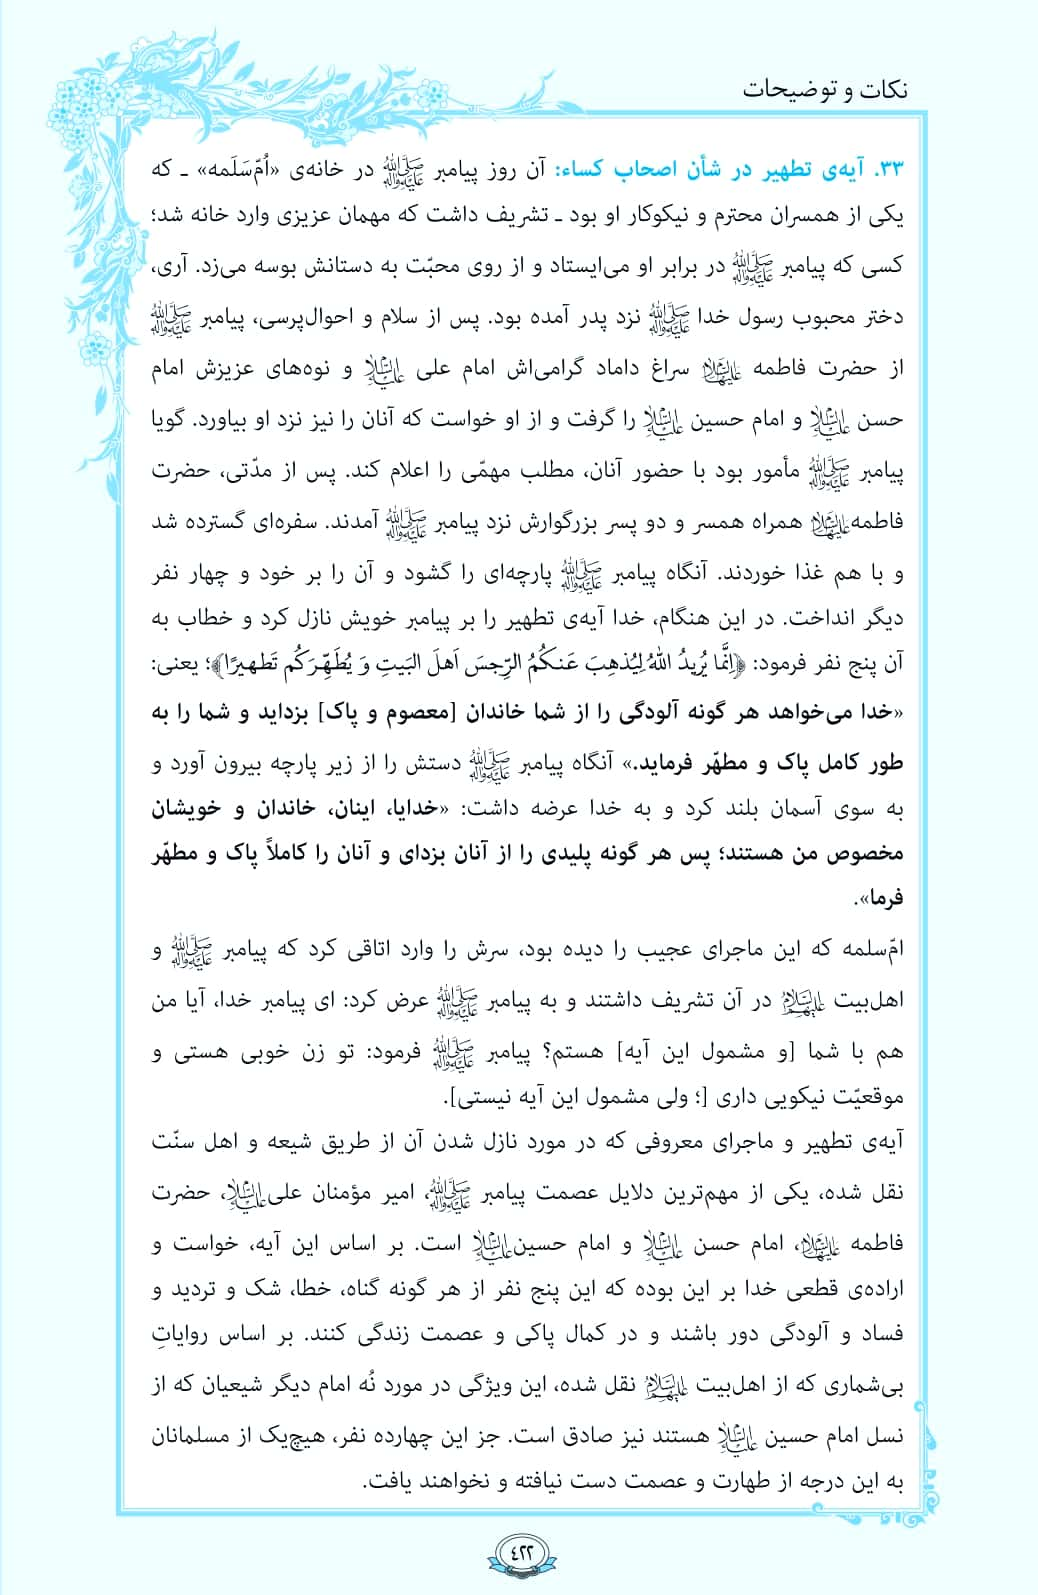 نکات و توضیحات
۳۳. آیه‌ی تطهیر در شأن اصحاب کساء: آن روز پیامبر ﷺ در خانه‌ی «اُمّ‌سَلَمه» ـ که
یکی از همسران محترم و نیکوکار او بود ـ تشریف داشت که مهمان عزیزی وارد خانه شد؛
کسی که پیامبر ﷺ در برابر او می‌ایستاد و از روی محبّت به دستانش بوسه می‌زد. آری،
دختر محبوب رسول خدا ﷺ نزد پدر آمده بود. پس از سلام و احوال‌پرسی، پیامبر ﷺ
از حضرت فاطمه علیها السلام سراغ داماد گرامی‌اش امام علی علیه السلام و نوه‌های عزیزش امام
حسن علیه السلام و امام حسین علیه السلام را گرفت و از او خواست که آنان را نیز نزد او بیاورد. گویا
پیامبر ﷺ مأمور بود با حضور آنان، مطلب مهمّی را اعلام کند. پس از مدّتی، حضرت
فاطمه علیها السلام همراه همسر و دو پسر بزرگوارش نزد پیامبر ﷺ آمدند. سفره‌ای گسترده شد
و با هم غذا خوردند. آنگاه پیامبر ﷺ پارچه‌ای را گشود و آن را بر خود و چهار نفر
دیگر انداخت. در این هنگام، خدا آیه‌ی تطهیر را بر پیامبر خویش نازل کرد و خطاب به
آن پنج نفر فرمود: ﴿اِنَّما یُریدُ اللهُ لِیُذهِبَ عَنکُمُ الرِّجسَ اَهلَ البَیتِ وَ یُطَهِّرَکُم تَطهیرًا﴾؛ یعنی:
«خدا می‌خواهد هر گونه آلودگی را از شما خاندان [معصوم و پاک] بزداید و شما را به
طور کامل پاک و مطهّر فرماید.» آنگاه پیامبر ﷺ دستش را از زیر پارچه بیرون آورد و
به سوی آسمان بلند کرد و به خدا عرضه داشت: «خدایا، اینان، خاندان و خویشان
مخصوص من هستند؛ پس هر گونه پلیدی را از آنان بزدای و آنان را کاملاً پاک و مطهّر
فرما».
امّ‌سلمه که این ماجرای عجیب را دیده بود، سرش را وارد اتاقی کرد که پیامبر ﷺ و
اهل‌بیت علیهم السلام در آن تشریف داشتند و به پیامبر ﷺ عرض کرد: ای پیامبر خدا، آیا من
هم با شما [و مشمول این آیه] هستم؟ پیامبر ﷺ فرمود: تو زن خوبی هستی و
موقعیّت نیکویی داری [؛ ولی مشمول این آیه نیستی].
آیه‌ی تطهیر و ماجرای معروفی که در مورد نازل شدن آن از طریق شیعه و اهل سنّت
نقل شده، یکی از مهم‌ترین دلایل عصمت پیامبر ﷺ، امیر مؤمنان علی علیه السلام، حضرت
فاطمه علیها السلام، امام حسن علیه السلام و امام حسین علیه السلام است. بر اساس این آیه، خواست و
اراده‌ی قطعی خدا بر این بوده که این پنج نفر از هر گونه گناه، خطا، شک و تردید و
فساد و آلودگی دور باشند و در کمال پاکی و عصمت زندگی کنند. بر اساس روایاتِ
بی‌شماری که از اهل‌بیت علیهم السلام نقل شده، این ویژگی در مورد نُه امام دیگر شیعیان که از
نسل امام حسین علیه السلام هستند نیز صادق است. جز این چهارده نفر، هیچ‌یک از مسلمانان
به این درجه از طهارت و عصمت دست نیافته و نخواهند یافت.
٤٢٢